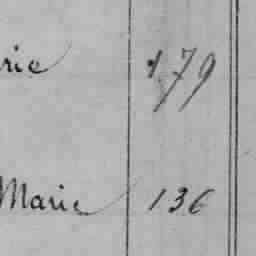 rie 179
Marie 136